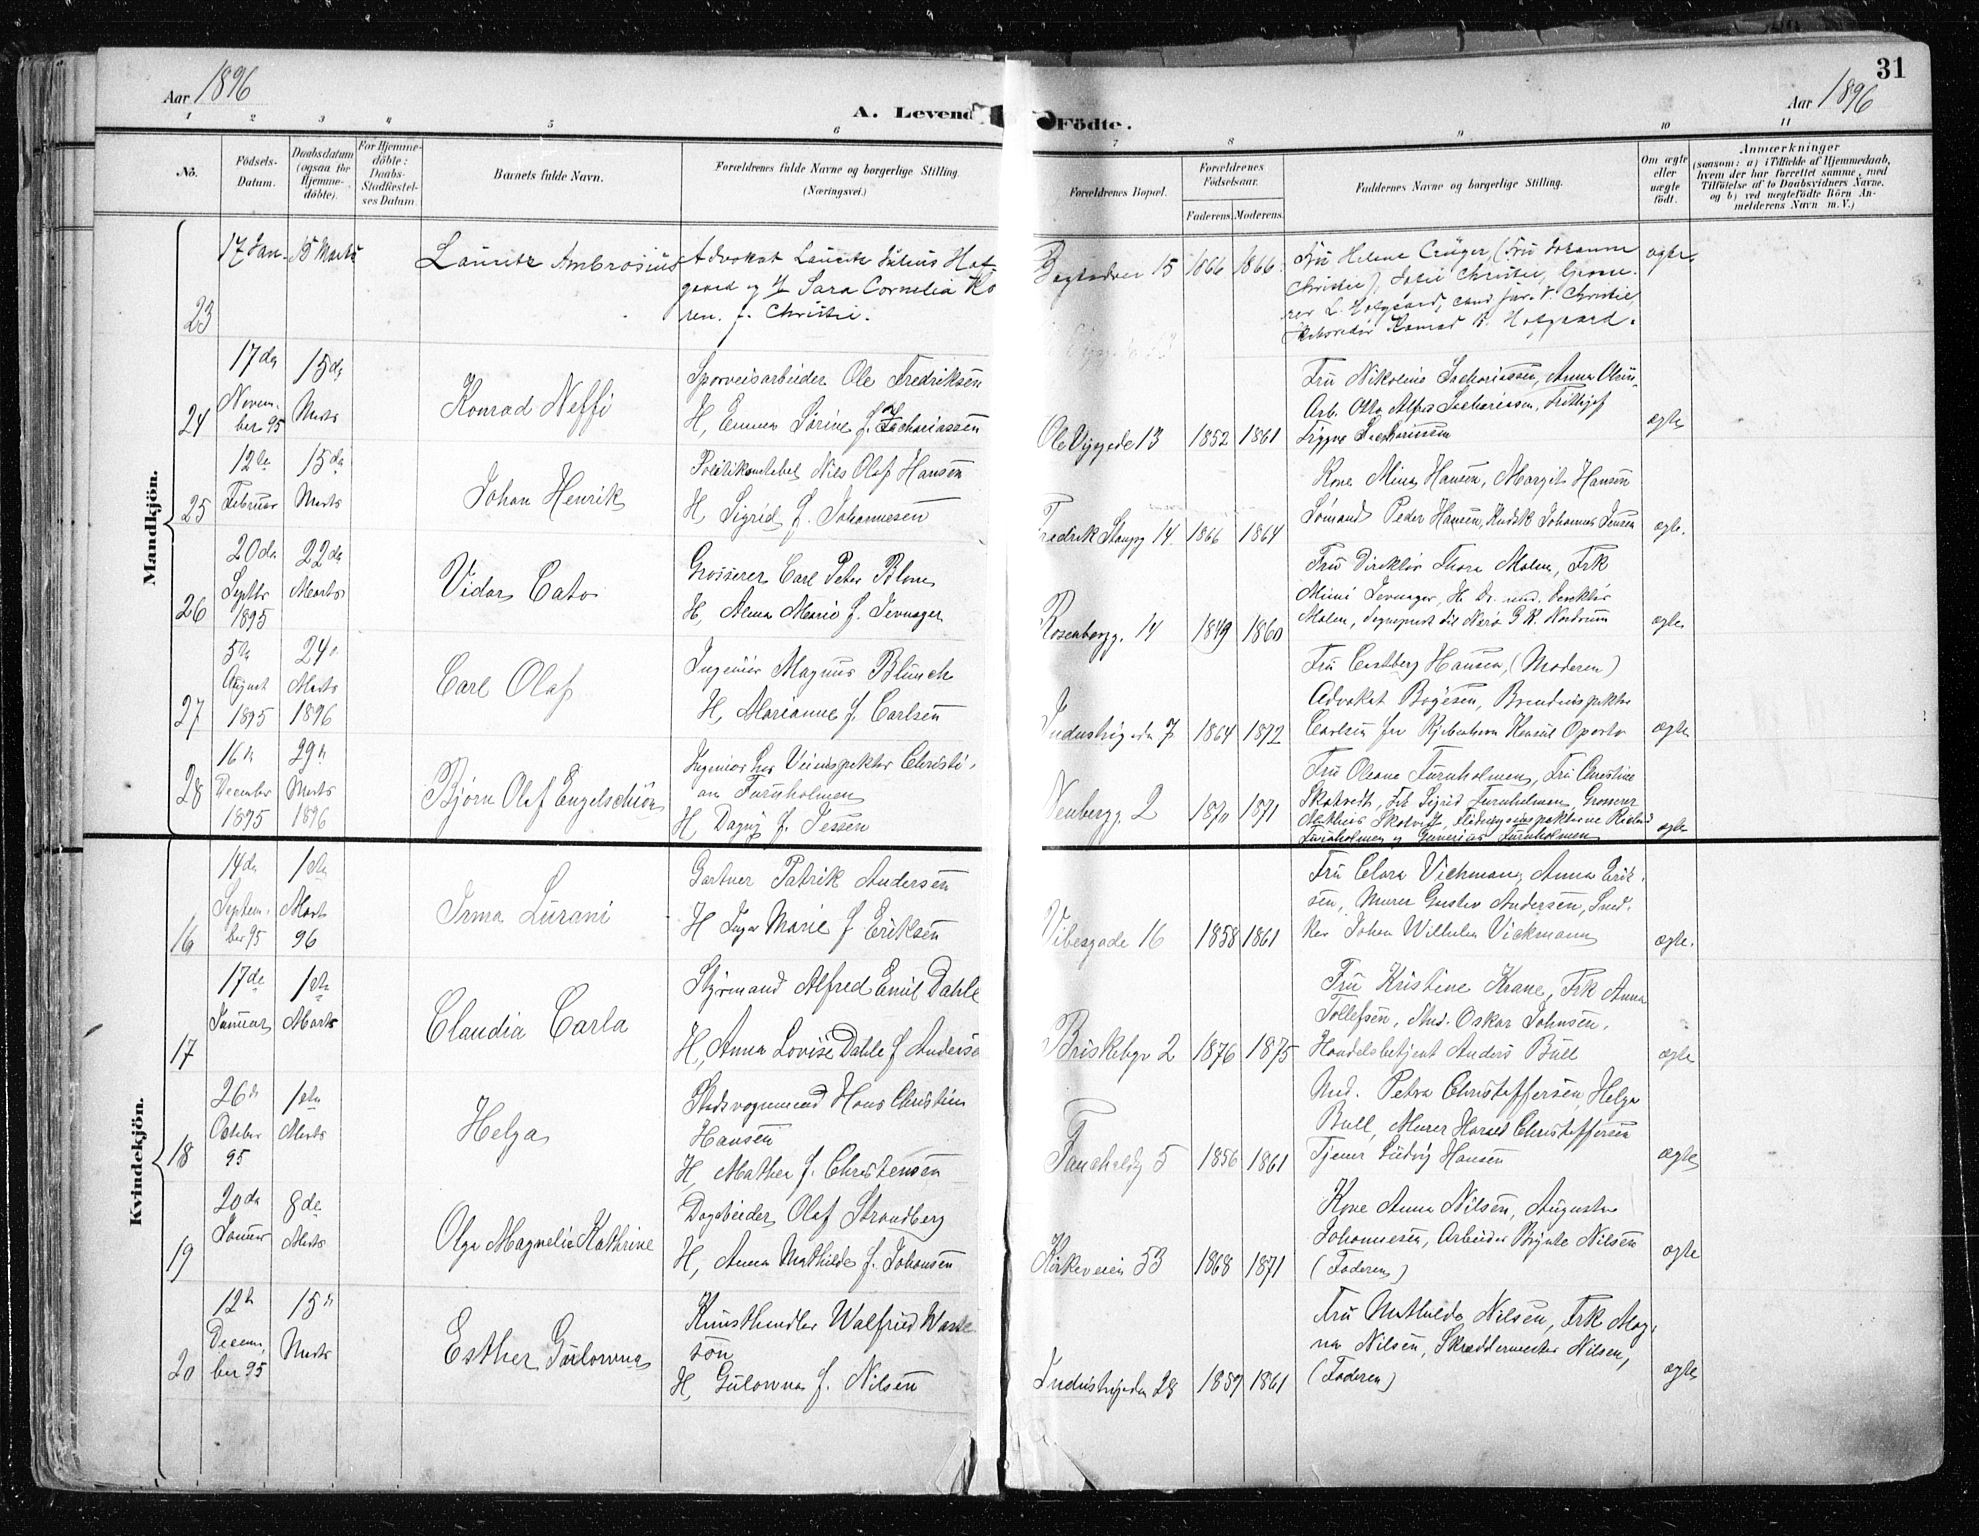 31
Aar 1896
Aar 1896
A. Levende Födte.
1 2 3 4 5 6 7 8 9 10 11
No.
Födsels-Datum.
Daabsdatum (ogsaa for Hjemme-döbte).
For Hjemme-döbte: Daabs-Stadfæstel-ses Datum.
Barnets fulde Navn.
Forældrenes fulde Navne og borgerlige Stilling.
(Næringsvei.)
Forældrenes Bopæl.
Forældrenes Födselsaar.
Faderens. Moderens.
Faddernes Navne og borgerlige Stilling.
Om ægte eller uægte födt.
Anmærkninger
(saasom: a) i Tilfælde af Hjemmedaab,
hvem der har forrettet samme, med
Tilföielse af to Daabsvidners Navne.
og b) ved uægtefödte Börn An-
melderens Navn m. V.)
Mandkjön.
23 17 Jan. 15 Marts
Lauritz Ambrosius
Advokat Lauritz Julius Hof
gaard og H. Sara Cornelia Ko
ren f. Christie.
15 1866 1866
Fru Helene Crüger, (Fru Johanne
Christie), Julie Christie, Grosse-
rer L. Hofgaard, cand. jur. V. Christie,
Konrad B. Hofgaard.
ægte.
24 17de Novem-ber 95 15de Marts
Konrad Neffi
Sporveisarbeider Ole Fredriksen
H, Emma Sörine f. Zachariassen
Ole Viggsgde 13 1852 1861
Fru Nikoline Zachariassen, Anna
Arb. Otto Alfred Zachariassen, Frithjof
Trygve Zachariassen
ægte
25 12te Februar 15de Marts
Johan Henrik
Politikonstabel Nils Olaf Hansen
H, Sigrid f. Johannesen
Fredrik Stangsg 14. 1866 1864
Kone Mina Hansen, Margit Hansen
Sömand Peder Hansen, Kudsk Johannes Jensen
ægte.
26 20de Septbr 1895 22de Marts
Vidar Cato
Grosserer Carl Peter Blom
H, Alma Marie f. Jevnager
Rosenbergg. 14 1849 1860
Fru Direktör Thora Malm, Frk
Mimi Jevnager, H. Dr. med. Direktör
Malm, G. R. Nordrum
ægte
27 5te August 1895 24de Marts 1896
Carl Olaf
Ingeniör Magnus Blunck
H, Marianne f. Carlsen
Industrigaden 7 1864 1872
Fru Hansen, (Moderen)
Advokat Bogesen,
Carlsen Konsul Oporto
ægte
28 16de December 1895 29de Marts 1896
Björn Olaf Engelschiön
Ingeniör Veiinspektör Christi-
an Furuholmen
H, Dagny f. Jessen
Neubergg. 2 1870 1871
Fru Oleane Furuholmen, Fru Christine
Skotvedt, Frk Sigrid Furuholmen, Grosserer
Mathias Skotvedt,
Furuholmen og Furuholmen
ægte
Kvindekjön.
16 14de Septem-ber 95 1ste Mart 96
Irma Lurani
Gartner Patrik Andersen
H Inga Marie f Eriksen
Vibesgade 16 1858 1861
Fru Clara Vickmann, Anna Erik-
sen, Murer Gustav Andersen, Sned-
ker Johan Wilhelm Vickmann
ægte.
17 17de Januar 1ste Marts
Claudia Carla
Styrmand Alfred Emil Dahle
H, Anna Lovise Dahle f Anderse
Briskebyv 2 1876 1875
Fru Kristine Krane, Frk Anna
Tollefsen, Oskar Johnsen,
Handelsbetjent Anders Bull
ægte
18 26de October 95 1ste Marts
Helga
Stadsvognmand Hans Christian
Hansen
H, Mathea f. Christensen
5 1856 1861
Petra Christoffersen, Helga
Bull, Murer Harald Christoffersen
Tjener Ludvig Hansen
ægte
19 20de Januar 8de Marts
Olga Magnelia Kathrine
Dagarbeider Olaf Strandberg
H, Anna Mathilde f. Johansen
Kirkeveien 53 1868 1871
Kone Anna Nilsen, Augusta
Johannesen, Arbeider Bynte Nilsen
(Faderen)
ægte
20 12te Decem-ber 95 15de Marts
Esther Gulowna
Kunsthandler Walfrid
son
H, Gulowna f. Nilsen
Industrigaden 28 1859 1861
Fru Mathilde Nilsen, Frk Mag-
na Nilsen, Skræddermester Nilsen,
(Faderen)
ægte